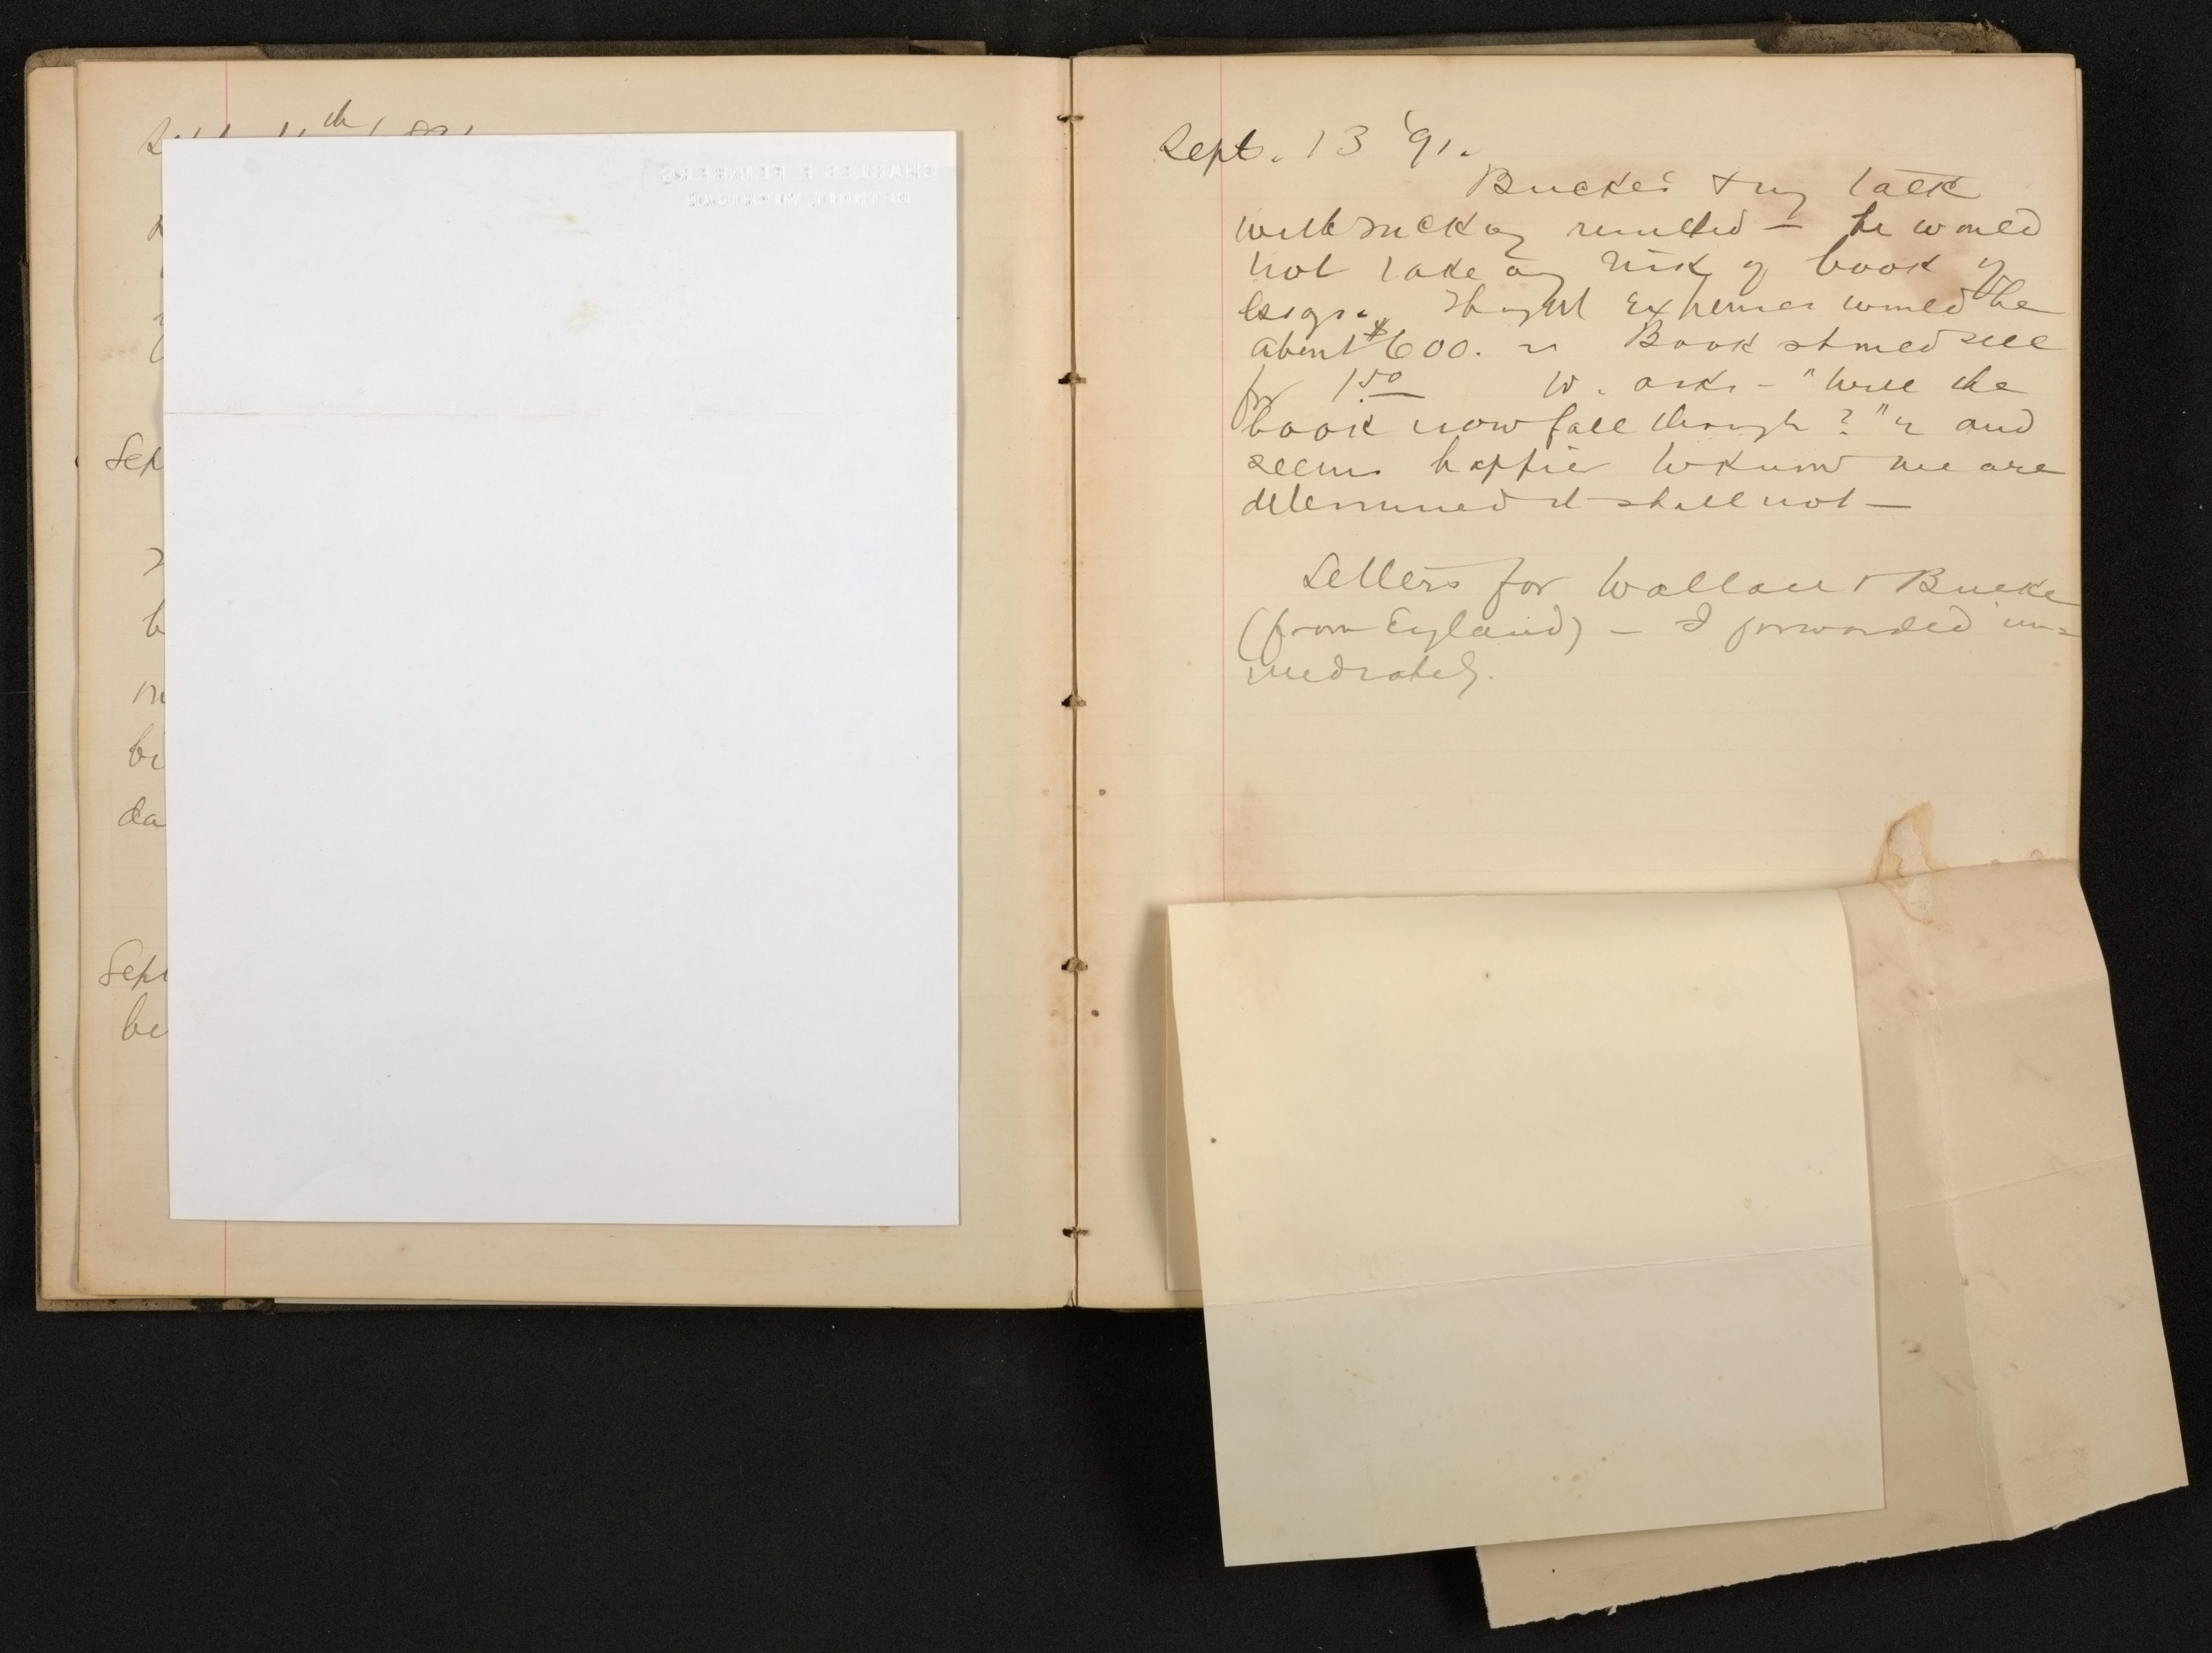 th
Sep
b
bi
da
Sept
be
CHARLES E. FEINBERG
DETROIT, MICHIGAN
Sept. 13 '91.
Bucke's & my talk
with McKay resulted — he would
not take any risk of book of
essays. Thought expenses would be
about $600. — Book should sell
for 1.50 W. asks — "Will the
book now fall through?" — and
seems happier to know we are
determined it shall not —
Letters for Wallace & Bucke
(from England) — I forwarded im=
mediately.